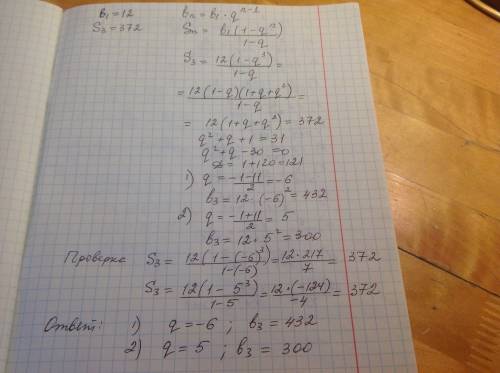 b₁=12
S₃=372
bn = b₁ · qⁿ⁻¹
Sn = b₁(1-qⁿ)/1-q
S₃ = 12(1-q³)/1-q =
= 12(1-q)(1+q+q²)/1-q =
= 12(1+q+q²) = 372
q²+q+1=31
q²+q-30=0
D = 1+120=121
1) q = -1-11/2 = -6
b₃ = 12 · (-6)² = 432
2) q = -1+11/2 = 5
b₃ = 12 · 5² = 300
Проверка S₃ = 12(1-(-6)³)/1-(-6) = 12·217/7 = 372
S₃ = 12(1-5³)/1-5 = 12·(-124)/-4 = 372
Ответ: 1) q = -6 ; b₃ = 432
2) q = 5 ; b₃ = 300